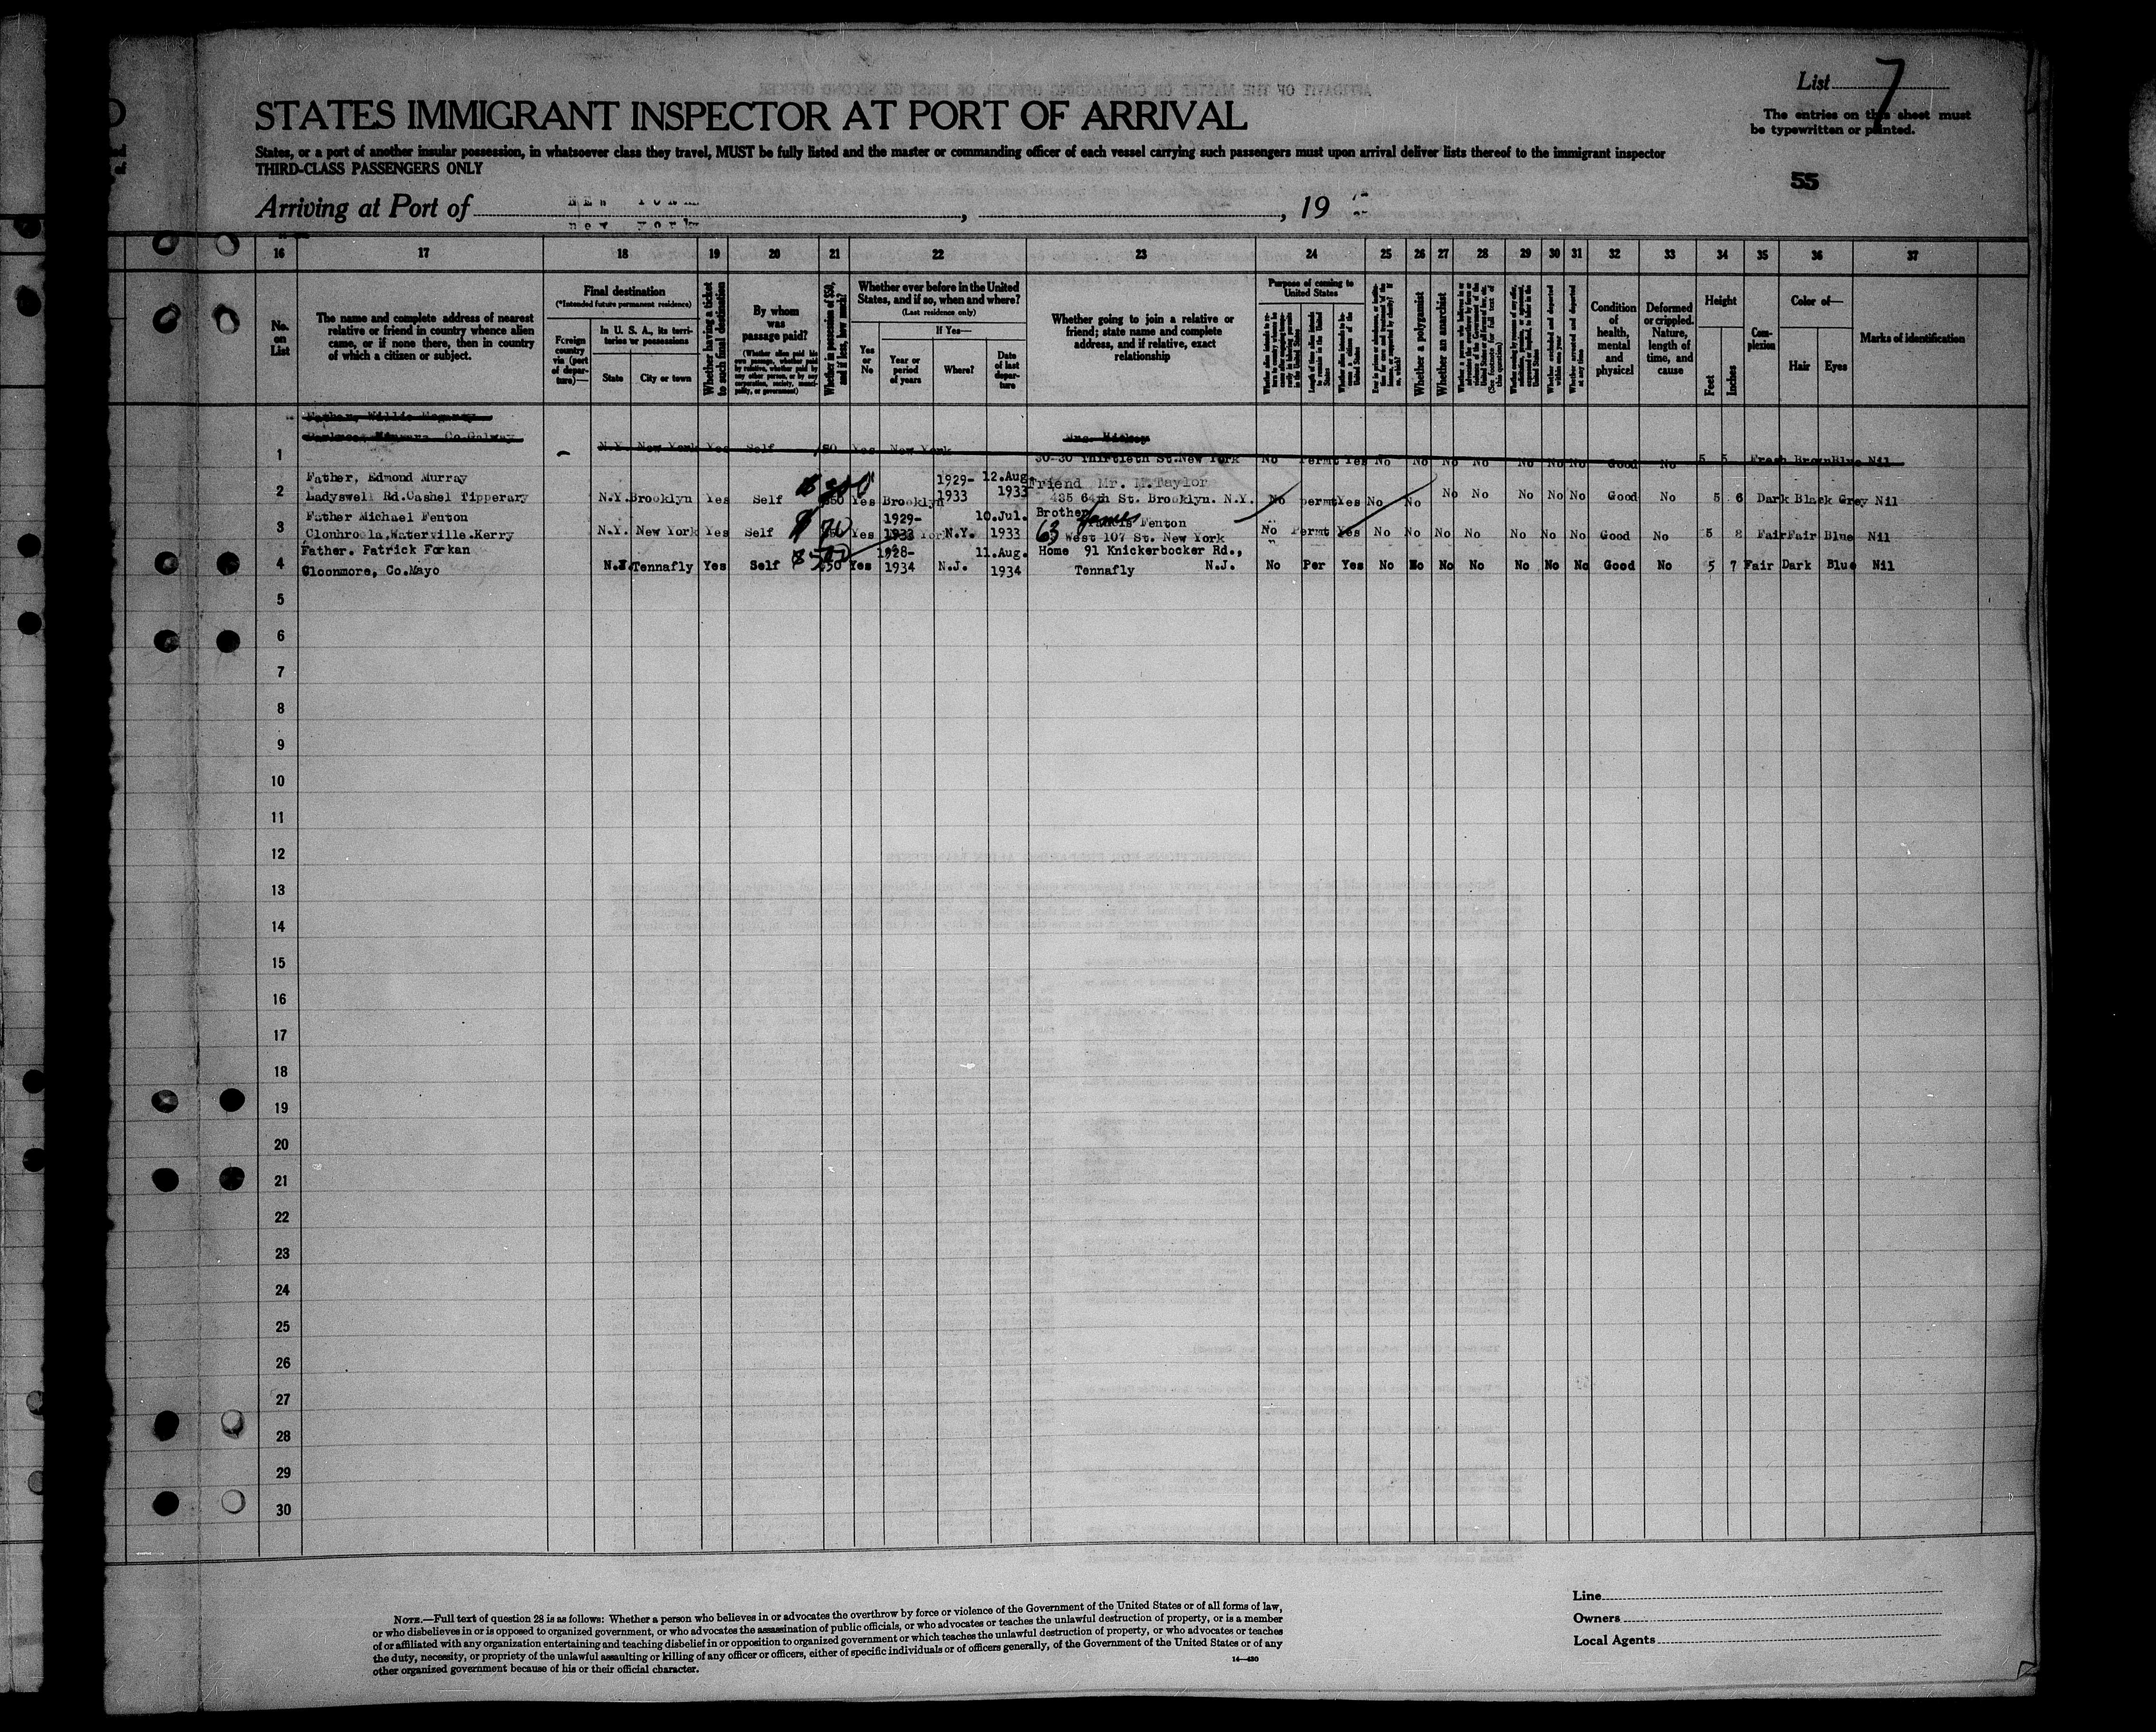 List 7
The entries on this sheet must
be typewritten or printed.
STATES IMMIGRANT INSPECTOR AT PORT OF ARRIVAL
States, or a port of another insular possession, in whatsoever class they travel, MUST be fully listed and the master or commanding officer of each vessel carrying such passengers must upon arrival deliver lists thereof to the immigrant inspector
THIRD-CLASS PASSENGERS ONLY
55
Arriving at Port of new york , , 19
16 17 18 19 20 21 22 23 24 25 26 27 28 29 30 31 32 33 34 35 36 37
No. on List
The name and complete address of nearest
relative or friend in country whence alien
came, or if none there, then in country
of which a citizen or subject.
Final destination
(*Intended future permanent residence)
Foreign country via (port of departure)—
In U. S. A., its territories or possessions
State
City or town
Whether having a ticket to such final destination
By whom was passage paid?
(Whether alien paid his own passage, whether paid by relative, whether paid by any other person, or by any corporation, society, municipality, or government)
Whether in possession of $50, and if less, how much?
Whether ever before in the United
States, and if so, when and where?
(Last residence only)
Yes or No
If Yes—
Year or period of years
Where?
Date of last departure
Whether going to join a relative or
friend; state name and complete
address, and if relative, exact
relationship
Purpose of coming to United States
Length of time alien intends to remain in the United States
Whether a polygamist
Whether an anarchist
(See footnote for full text of this question)
Whether arrested and deported at any time
Condition of health, mental and physical
Deformed or crippled. Nature, length of time, and cause
Height
Feet
Inches
Complexion
Color of—
Hair
Eyes
Marks of identification
1 Father, Willie
Co.Galway
– N.Y. New York Yes Self 50 Yes New York
30-30 Thirtieth St.New York No Permt Yes No No No No No No No Good No 5 5 Fresh Brown Blue Nil
2 Father, Edmond Murray
Ladyswell Rd.Cashel Tipperary
N.Y. Brooklyn Yes Self $ 300 $50 Yes Brooklyn 1929-1933 12.Aug 1933
Friend Mr. M.Taylor
435 64th St. Brooklyn. N.Y. No permt Yes No No No No No No No Good No 5 6 Dark Black Grey Nil
3 Father Michael Fenton
Clonhroola,Waterville.Kerry
N.Y. New York Yes Self $ 70 Yes 1929-1933 N.Y. 10.Jul. 1933
Brother James Fenton
63 West 107 St. New York No Permt Yes No No No No No No No Good No 5 8 Fair Fair Blue Nil
4 Father. Patrick Forkan
Cloonmore, Co.Mayo
Tennafly Yes Self $50 Yes 1928-1934 N.J. 11.Aug. 1934
Home 91 Knickerbocker Rd.,
Tennafly N.J. No Per Yes No No No No No No No Good No 5 7 Fair Dark Blue Nil
5
6
7
8
9
10
11
12
13
14
15
16
17
18
19
20
21
22
23
24
25
26
27
28
29
30
NOTE.—Full text of question 28 is as follows: Whether a person who believes in or advocates the overthrow by force or violence of the Government of the United States or of all forms of law,
or who disbelieves in or is opposed to organized government, or who advocates the assassination of public officials, or who advocates or teaches the unlawful destruction of property, or is a member
of or affiliated with any organization entertaining and teaching disbelief in or opposition to organized government or which teaches the unlawful destruction of property, or who advocates or teaches
the duty, necessity, or propriety of the unlawful assaulting or killing of any officer or officers, either of specific individuals or of officers generally, of the Government of the United States or of any
other organized government because of his or their official character.
14—430
Line
Owners
Local Agents